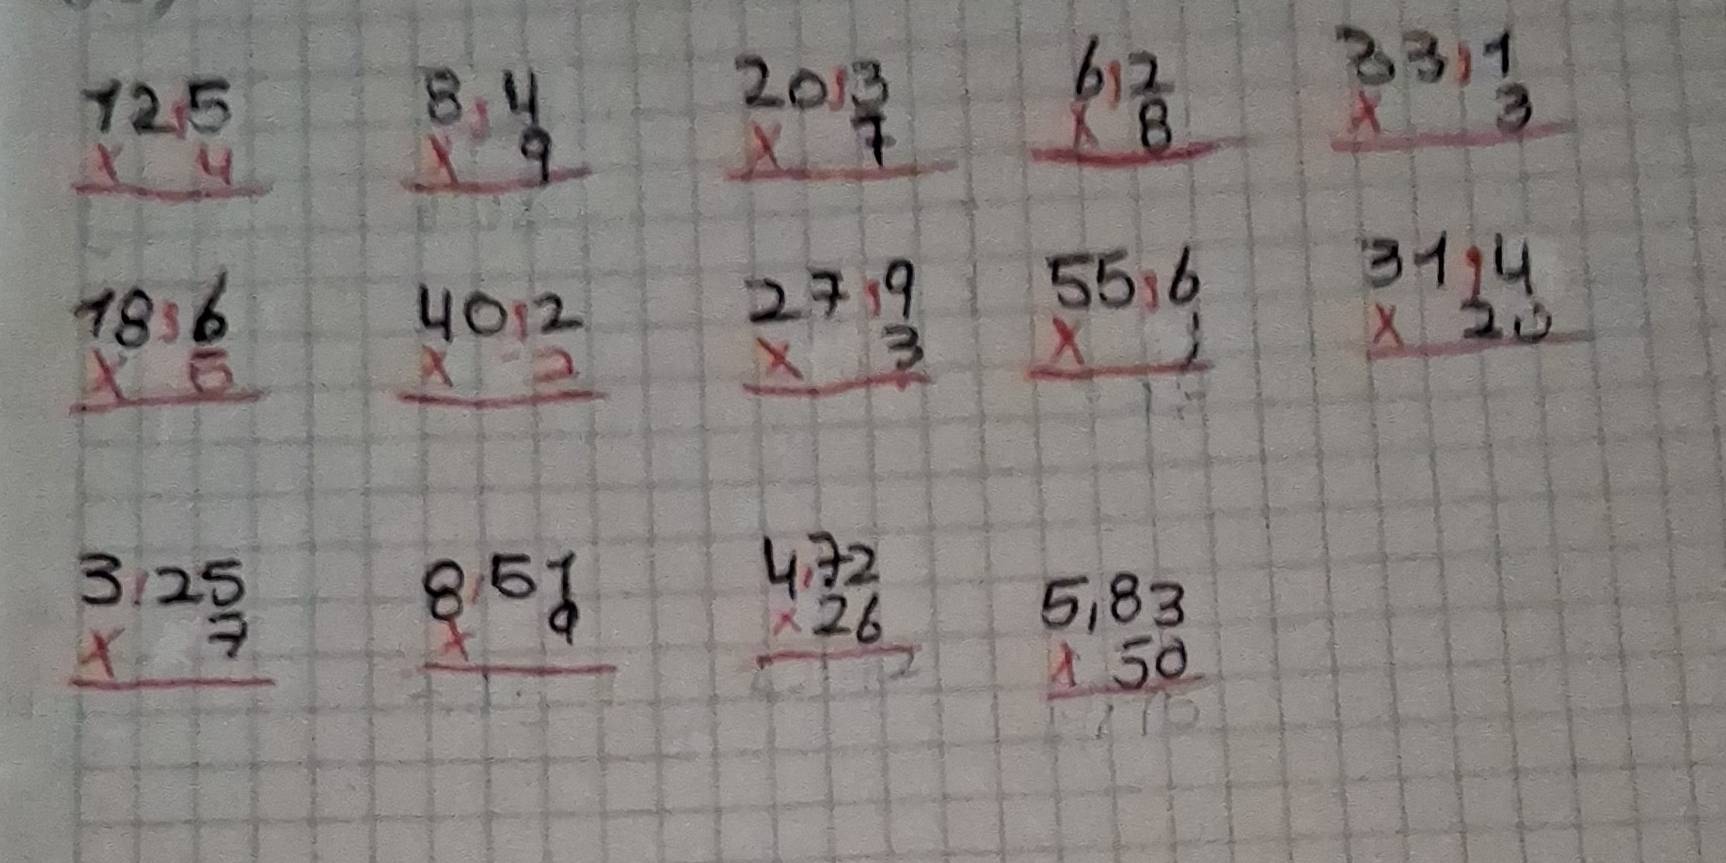 12,5 8,4 20,3 6,2 33,1
x 4 x 9 x 7 x 8 x 3
18,6 40,2 27,9 55,6 31,4
x 5 x 2 x 3 x 1 x 20
3,25 8,51 4,72 5,83
x 7 x 9 x 26 x 50